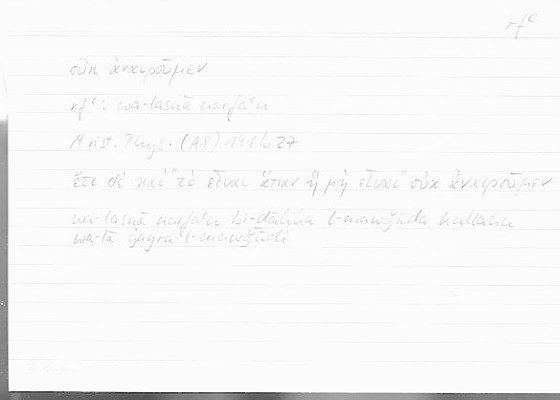 rfʿ
οὐκ ἀναιροῦμεν
rfʿ: wa-lasnā narfaʿu
Arist. Phys. (A8) 191b27
ἔτι δὲ καὶ "τὸ εἶναι ἅπαν ἢ μὴ εἶναι" οὐκ ἀναιροῦμεν
wa-lasnā narfaʿu bi-dālika l-mawǧūda kullahu
wa-lā ġayra l-mawǧūdi